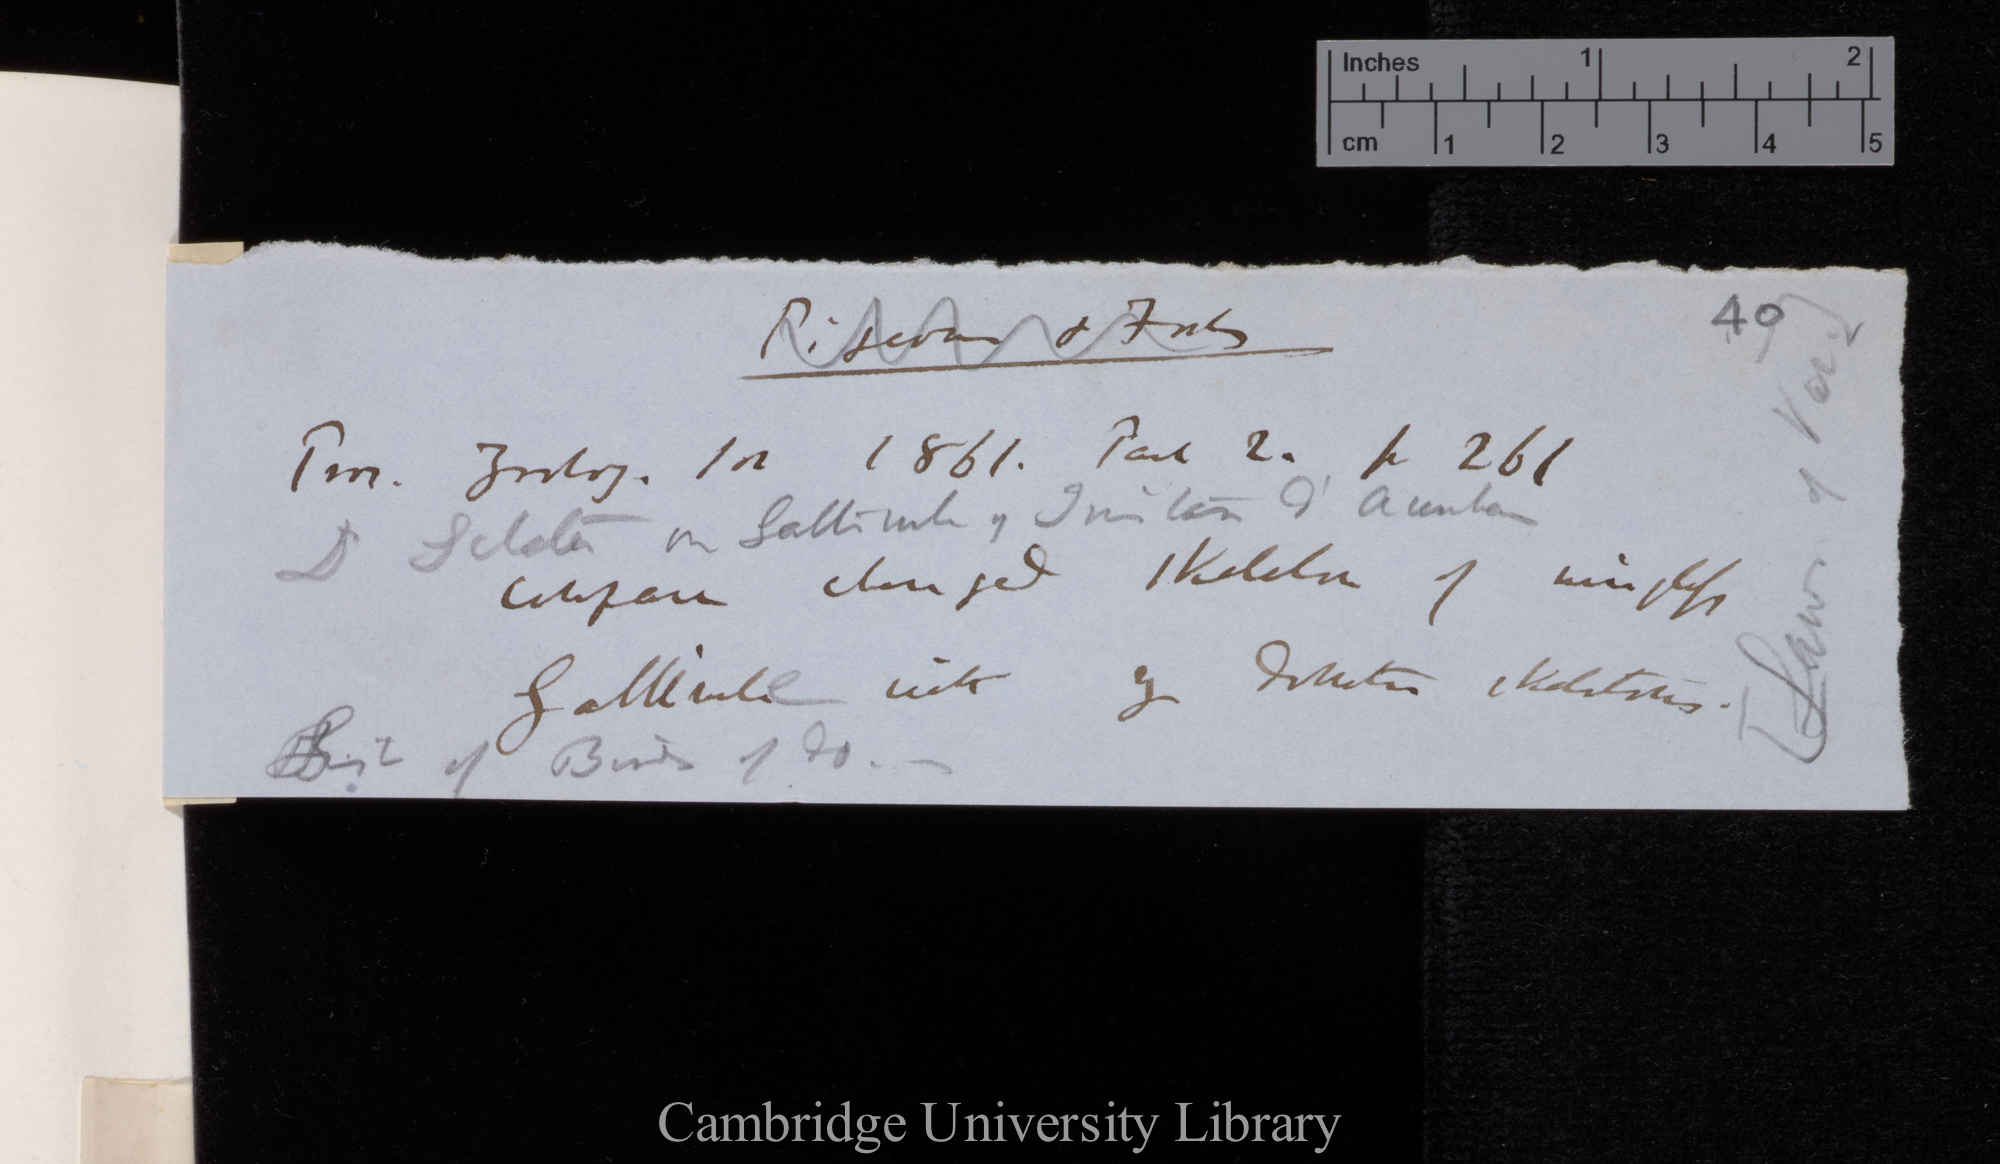 Inches 1 2
cm 1 2 3 4 5
49
Pigeons & Fowls
Proc. Zoolog. Soc 1861. Part 2. p 261
Dr Sclater on Gallinule of Tristan d'Acunha
compare changed skeleton of wingless
Gallinule with my domestic skeletons.
of Birds of do. —
[Laws of Var.]
Cambridge University Library